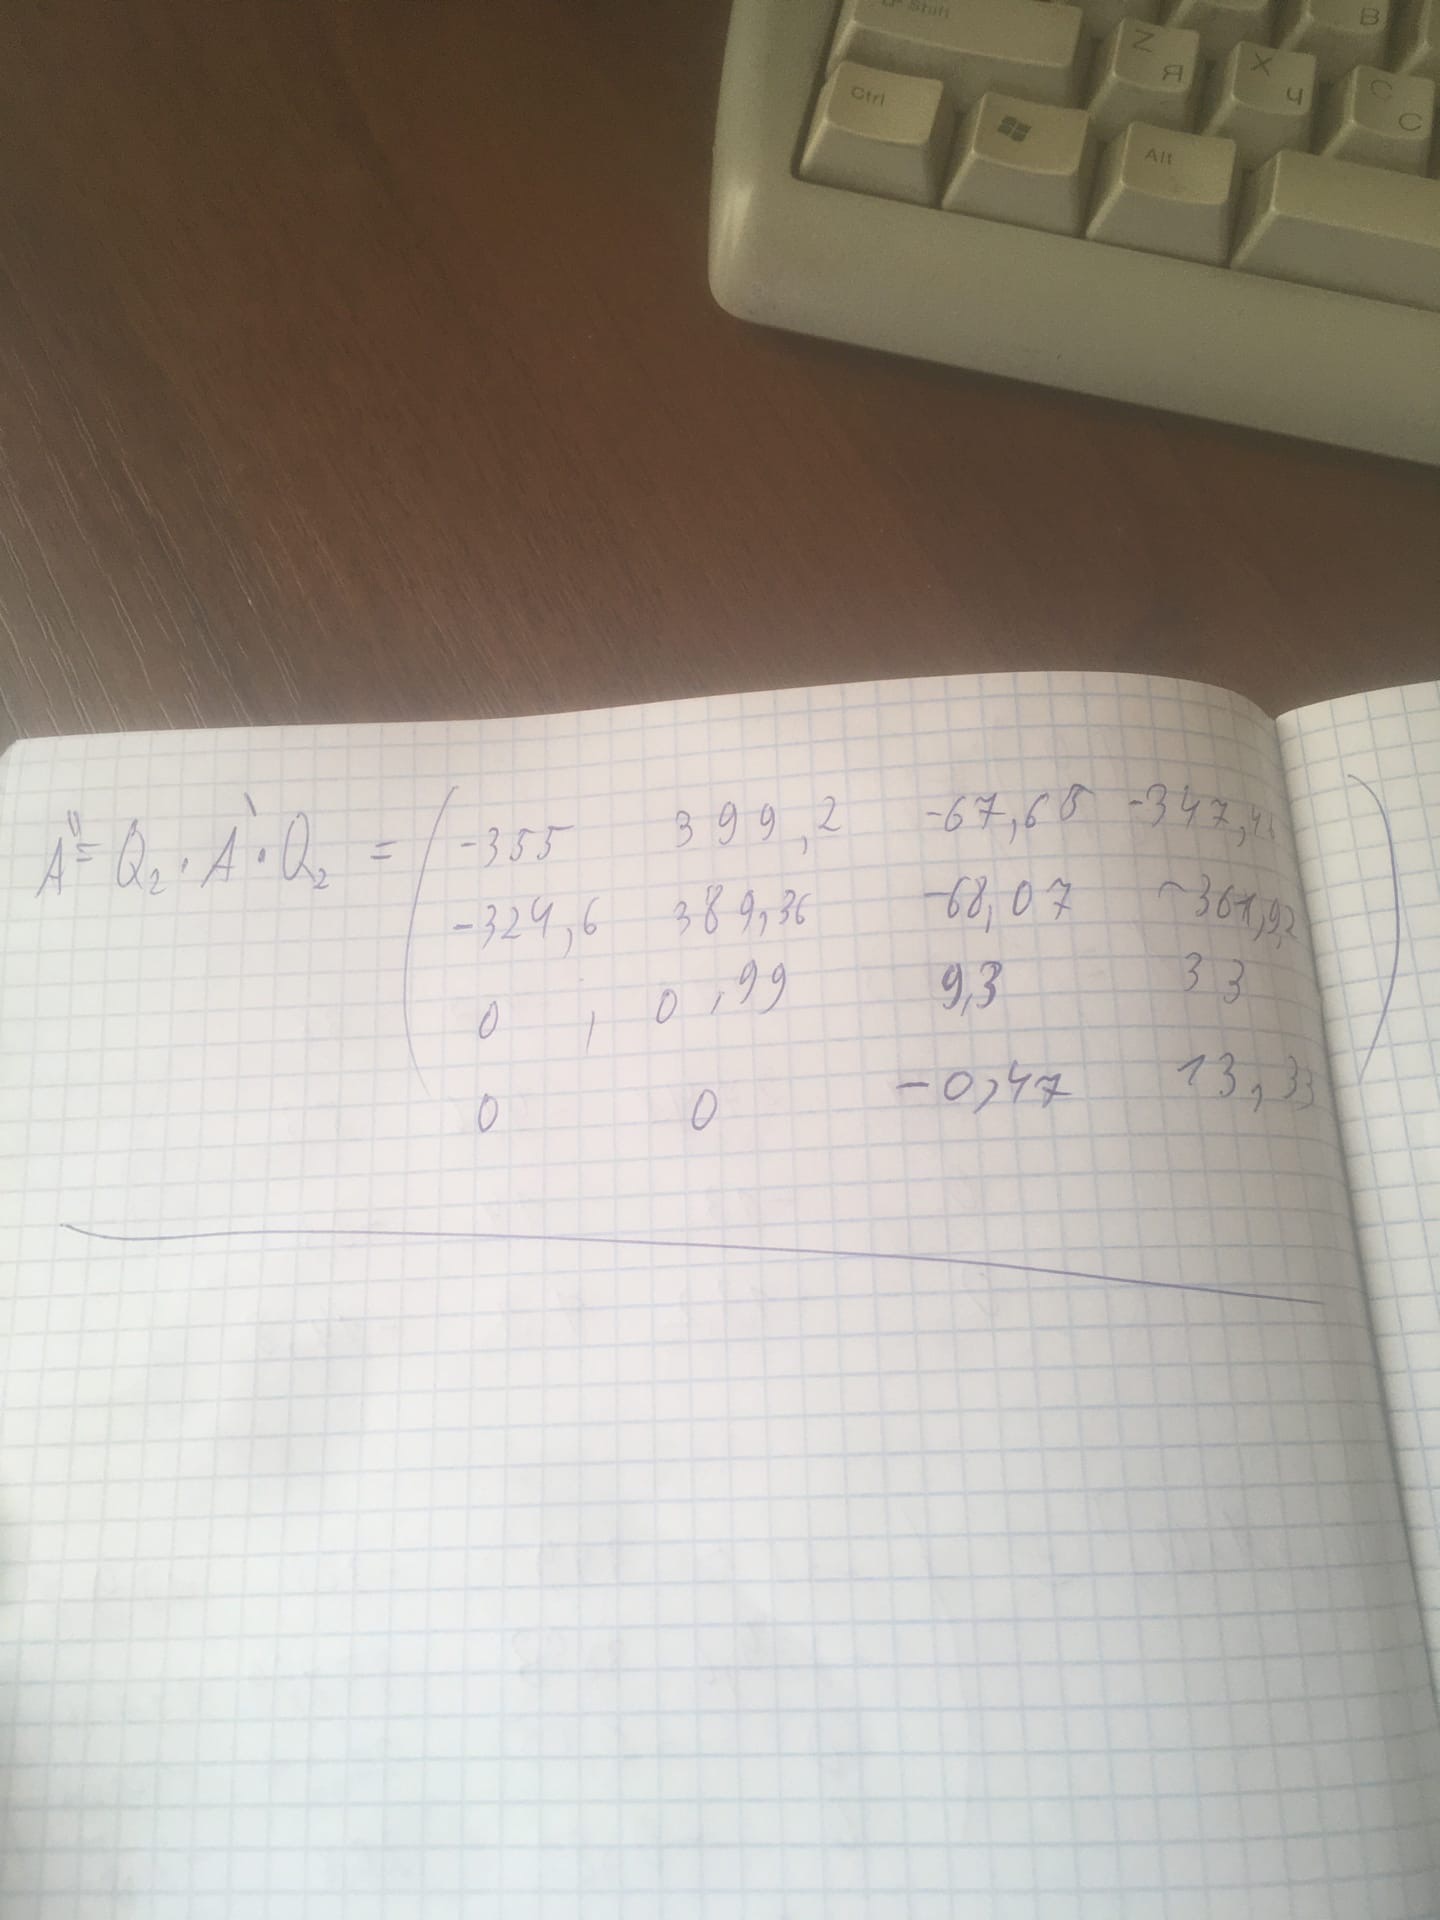 Shift
Z Я
X Ч
C С
B
Ctrl
Alt
A'' = Q₂ · A' · Q₂ = ( -355 399,2 -67,68 -347,4 )
-324,6 389,36 -68,07 -361,92
0 , 0,99 9,3 33
0 0 -0,47 13,33